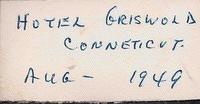 HOTEL GRISWOLD
CONNETICUT.
AUG - 1949